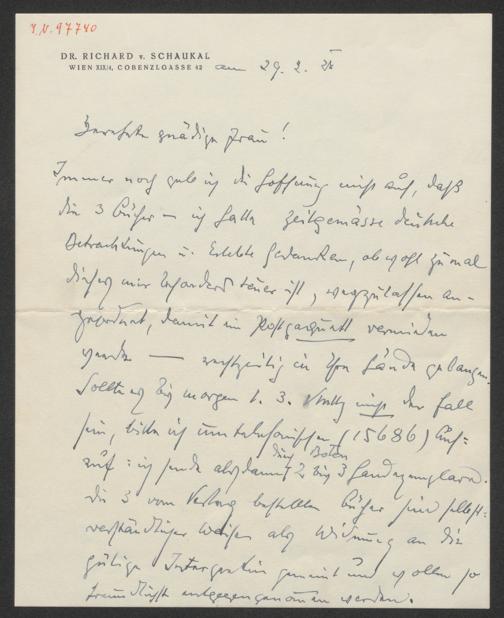 J.N. 97740
DR. RICHARD v. SCHAUKAL
WIEN XIX/4, COBENZLGASSE 42
am 29. 2.
Verehrte gnädige Frau!
Immer noch gebe ich die Hoffnung nicht auf, daß
die 3 Bücher — ich hatte zeitgemässe deutsche
Betrachtungen u. Erlebte Gedanken, obwohl zumal
dieses mir besonders teuer ist, wegzulassen an-
geordnet, damit ein Postpaquett vermieden
werde — rechtzeitig in Ihre Hände gelangen.
Sollte es bis morgen 1. 3. nicht der Fall
sein, bitte ich um telephonischen (15686) An-
ruf: ich sende alsdann durch Boten 2 bis 3 Handexemplare.
Die 3 vom Verlag bestellten Bücher sind selbst-
verständlicher Weise als Widmung an die
gütige Interpretin gemeint und wollen so
freundlichst entgegengenommen werden.